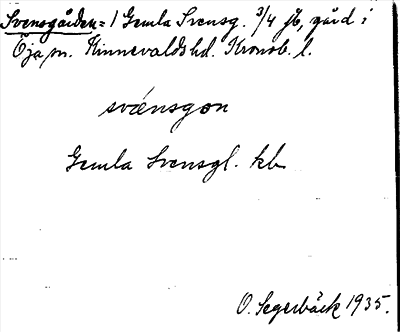 Svensgården = 1 Gemla Svensg. 3/4 fb, gård i
Öja sn. Kinnevalds hd. Kronob. l.
svänsgon
Gemla Svensgl. kb
O. Segerbäck 1935.